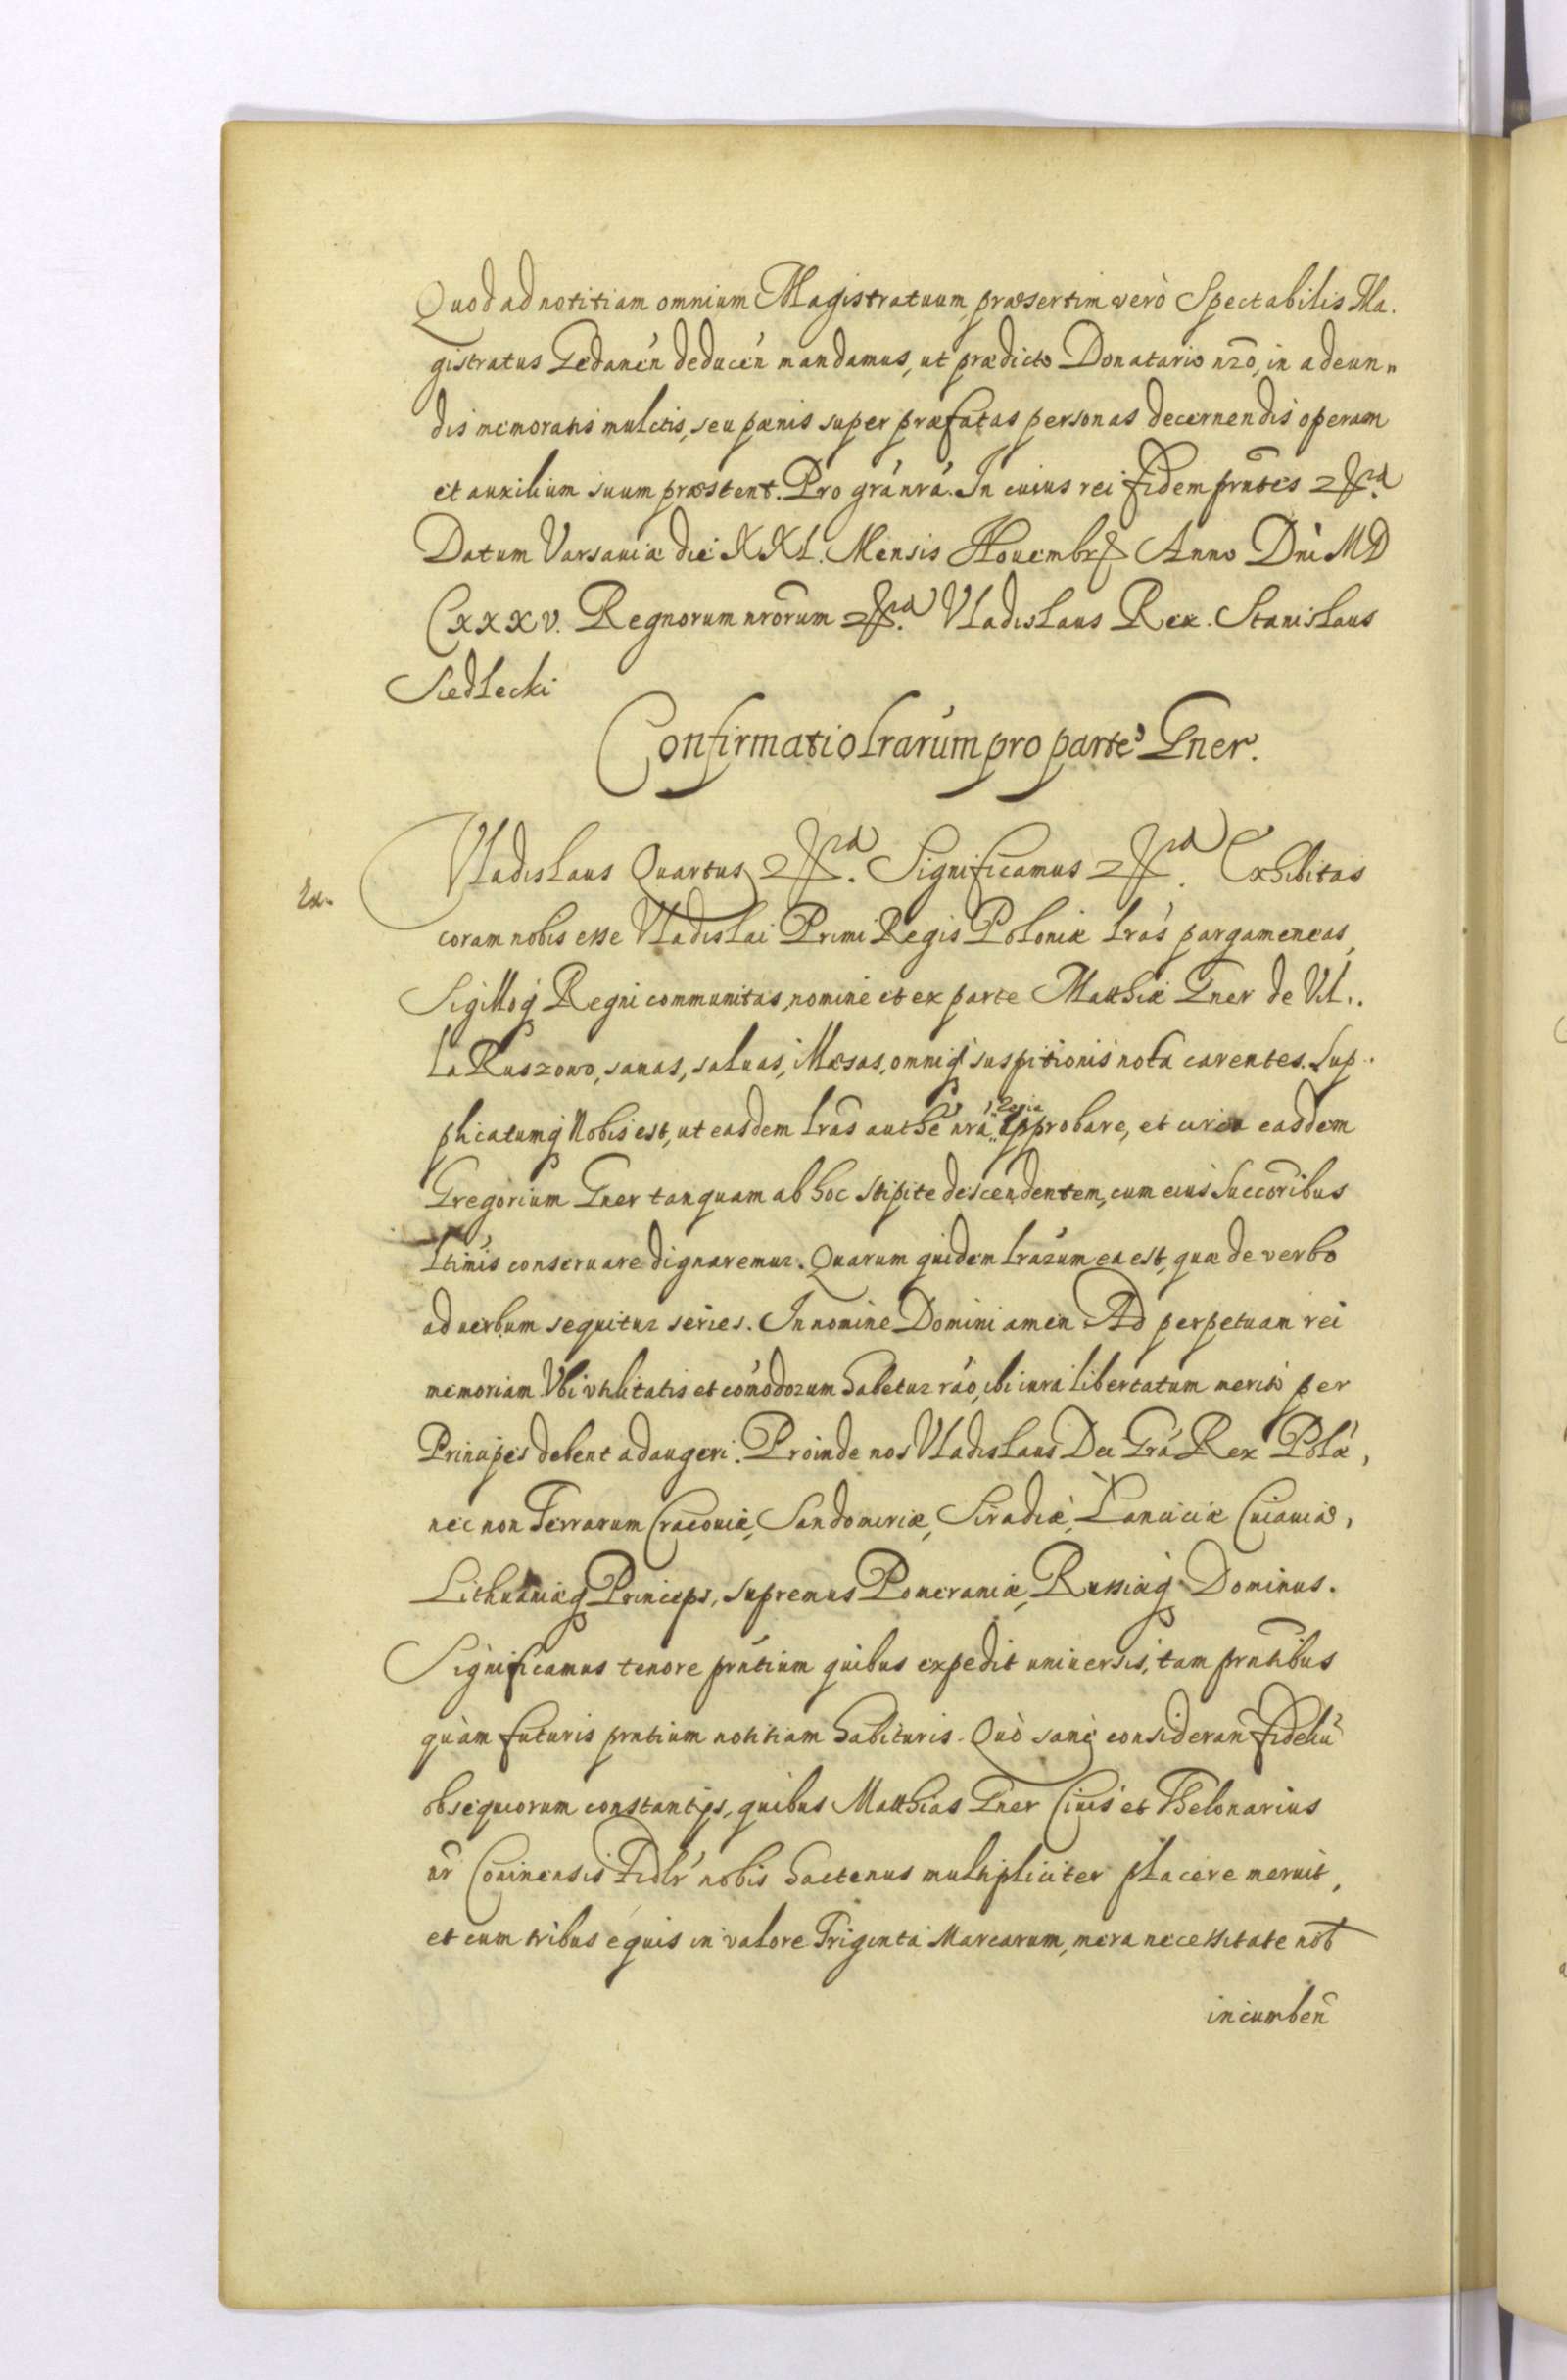 Quod ad notitiam omnium Magistratuum, præsertim verò Spectabilis Ma.
gistratus Gedanén deducén mandamus, ut prædicto Donatario nr̃o, in adeun„
dis memoratis mulctis, seu pænis super præfatas personas decernendis operam
et auxilium suum præstent. Pro grá nrá. In cuius rei fidem prñtes
Datum Varsaviæ die XXI. Mensis Novembr Anno Dni MD
CXXXV. Regnorum nrõrum Vladislaus Rex. Stanislaus
Siedlecki
Confirmatio Lrarúm pro parte Gner.
Vladislaus Quartus Significamus Exhibitas
coram nobis esse Vladislai Primi Regis Poloniæ Lrás pargameneas,
Sigilloq Regni communitas, nomine et ex parte Matthiæ Gner de Vil..
la Ruszowo, sanas, salvas, illæsas, omniq suspitionis nota carentes. Sup.
plicatumq Nobis est, ut easdem Lrás authẽ nrá Regia approbare, et circa easdem
Gregorium Gner tanquam ab hoc stipite descendentem, cum eius Succoribus
Ltimis conservare dignaremur. Quarum quidem Lrarúm ea est, quæ de verbo
ad verbum sequitur series. In nomine Domini amen Ad perpetuam rei
memoriam Vbi vtilitatis et comódorum habetur ráo, ibi iura libertatum meritò per
Principes debent adaugeri. Proinde nos Vladislaus Dei Grá Rex Polæ,
nec non Terrarum Cracoviæ, Sandomiriæ, Siradiæ, Lanciciæ Cuiaviæ,
Lithuaniæq Princeps, supremus Pomeraniæ, Russiæq Dominus.
Significamus tenore prńtium quibus expedit universis, tam prñtibus
quàm futuris prntium notitiam habituris. Quò sanè consideran fideliũ
obsequiorum constantijs, quibus Matthias Gner Civis et Thelonarius
nr̃ Coninensis Fidlr nobis hactenus multipliciter placere meruit,
et cum tribus equis in valore Triginta Marcarum, mera necessitate nob̃
incumbeñ